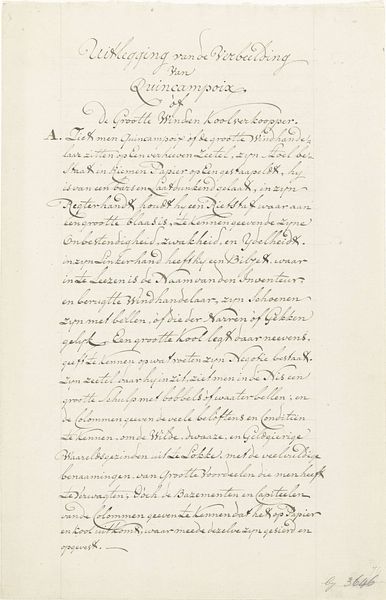 Uitlegging van de Verbeelding
Van
Quincampoix
of
De Grootte Wind en Koolverkooper.
A. Ziet men Quincampoix of de grootte Windhande-
laar zitten op Een verheven Zeetel, zijn Stoel be-
staat in Riemen Papier op Een gestaapeldt, hij
is van een barsen Laatdunkend gelaat, in zijn
Regterhandt houdt hij een Rietstok, waar aan
een grootte blaas is, te kennen geevende zijne
Onbestendigheid, zwakheid, en Ydelheidt.
in zijn Linkerhand heeft hij een Billet, waar
in te Leezen is de Naam van den Inventeur
en berugte Windhandelaar, zijn Schoenen
zijn met bellen, of die der Narren of Gekken
gelijk. Een grootte Kool legt daar neevens,
geeft te kennen op wat voeten zijn Negotie bestaat.
Zijn zeetel daar hij in zit, ziet men in de Nis een
groote Schulp met bobbels of waater bellen; en
de Colommen geeven de veele beloftens en Conditien
te kennen, om de Wilde, dwaaze, en Geldgierige
Waereldsgezinden uit te Lokken, met de veelvuldige
benaamingen, van Groote Voordeelen die men heeft
te Verwagten; Doch de Bazementen en Capiteelen
van de Colommen geeven te Kennen dat het op Papier
en Kool uitkomt, waar meede dezelve zijn gesierd en
opgevest.
bij 3646